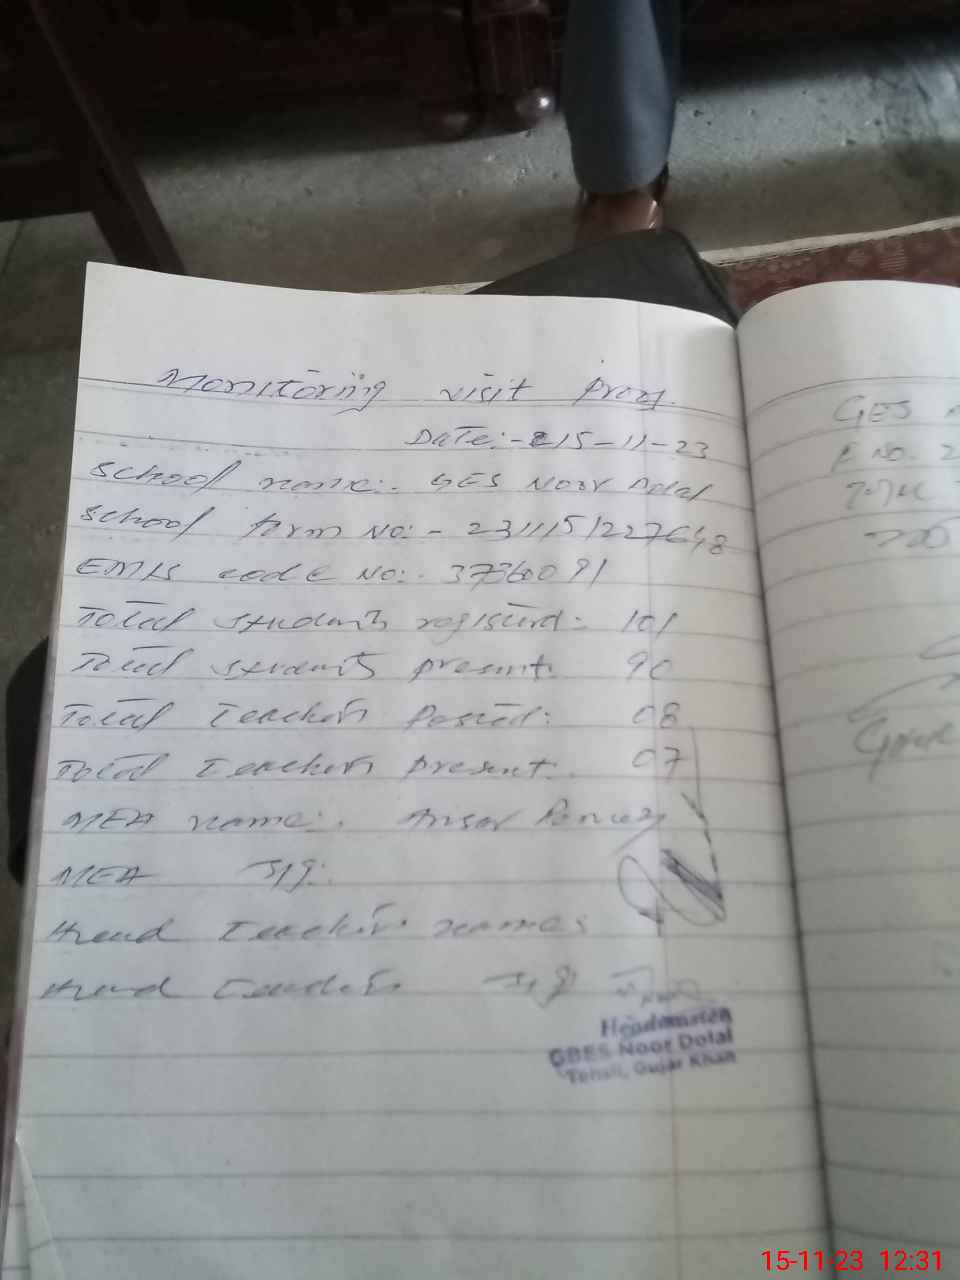 Monitoring visit Prog.
Date:- 15-11-23
School name:. GES Noor Dolal
School form No:- 2311151227648
EMIS code No:. 3736091
Total students registerd:- 101
Total students present. 90
Total Teachers Posted: 08
Total Teachers present. 07
MEA name:. Ansar
MEA sig:.
Head Teacher names
Head Teacher sig
Headmaster
GBES Noor Dolal
Tehsil, Gujar Khan
GES
E NO. 2
Total
15-11-23 12:31